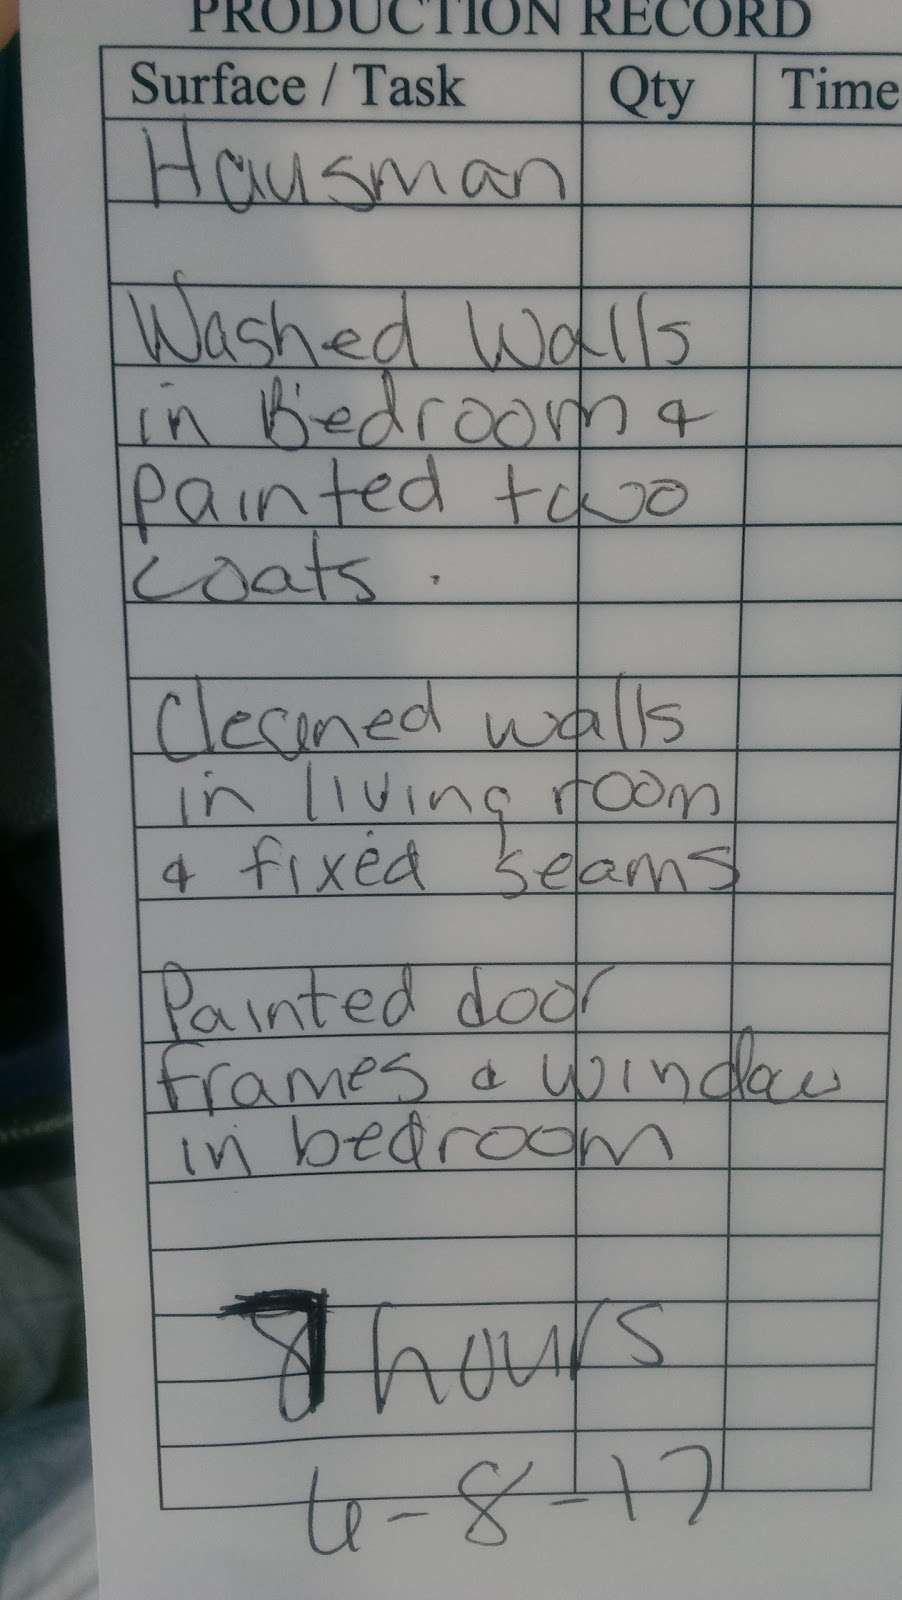 PRODUCTION RECORD
Surface / Task Qty Time
Hausman
Washed Walls
in Bedroom &
painted two
coats.
Cleaned walls
in living room
& fixed seams
Painted door
frames & window
in bedroom
7 hours
6-8-17